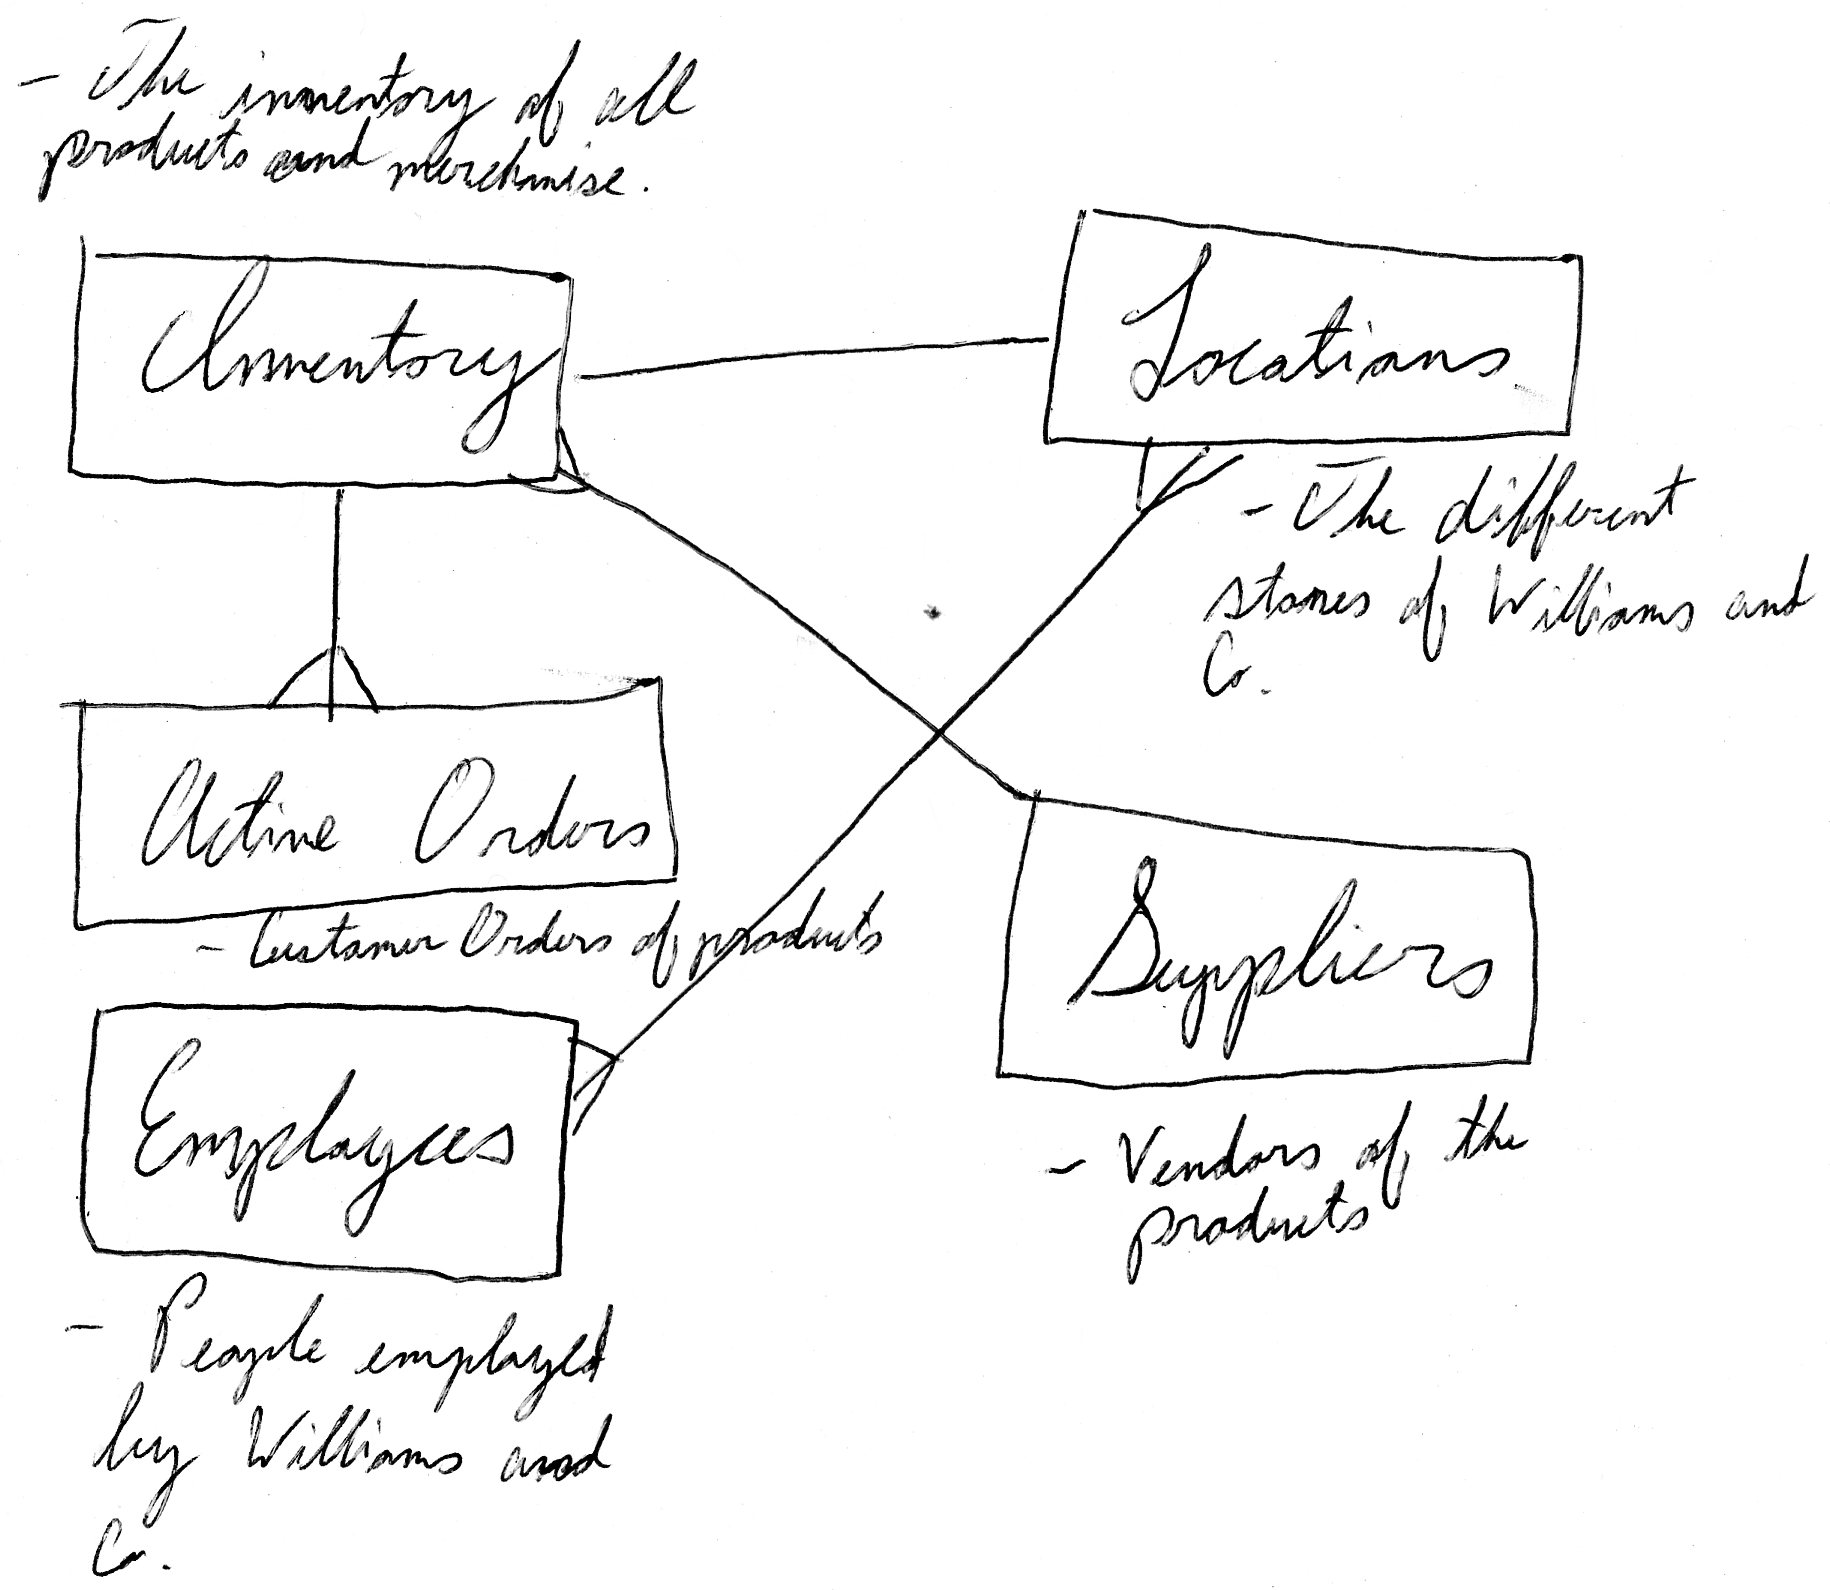 - The inventory of all
products and merchnise.
Inventory
Locations
- The different
stores of Williams and
Co.
Active Orders
- Customer Orders of products
Suppliers
- Vendors of the
products
Employees
- People employed
by Williams and
Co.